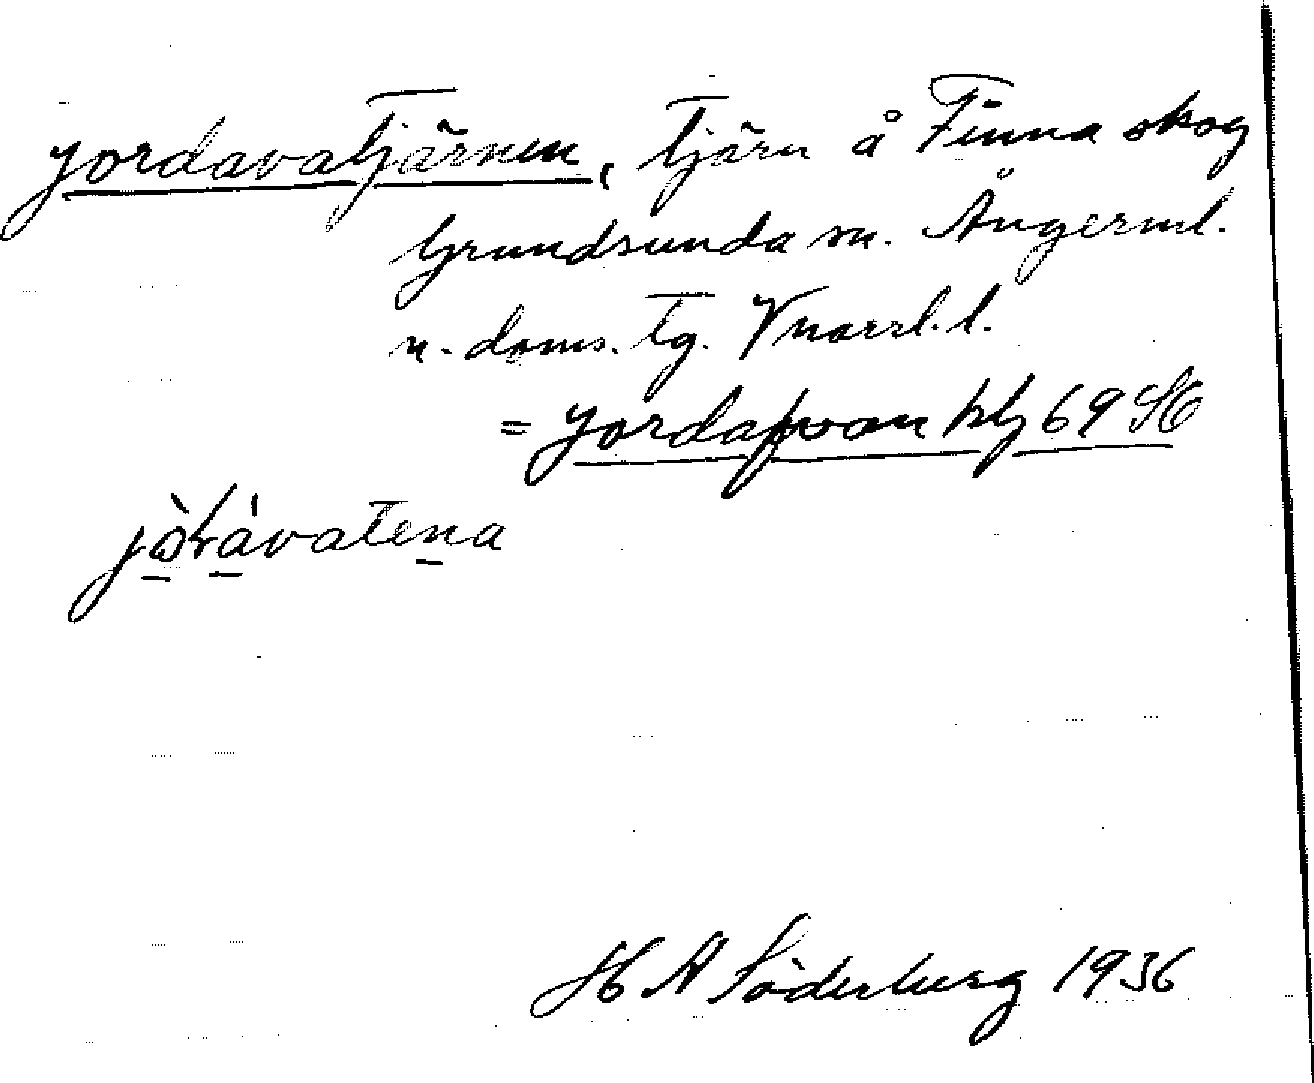 Jordavatjärnen, Tjärn å Finna skog
Grundsunda sn. Ångerml.
n. doms. Tg. Vnorrl. l.
= Jordapvan klj 69 SO
jòràvatena
H A Söderberg 1936